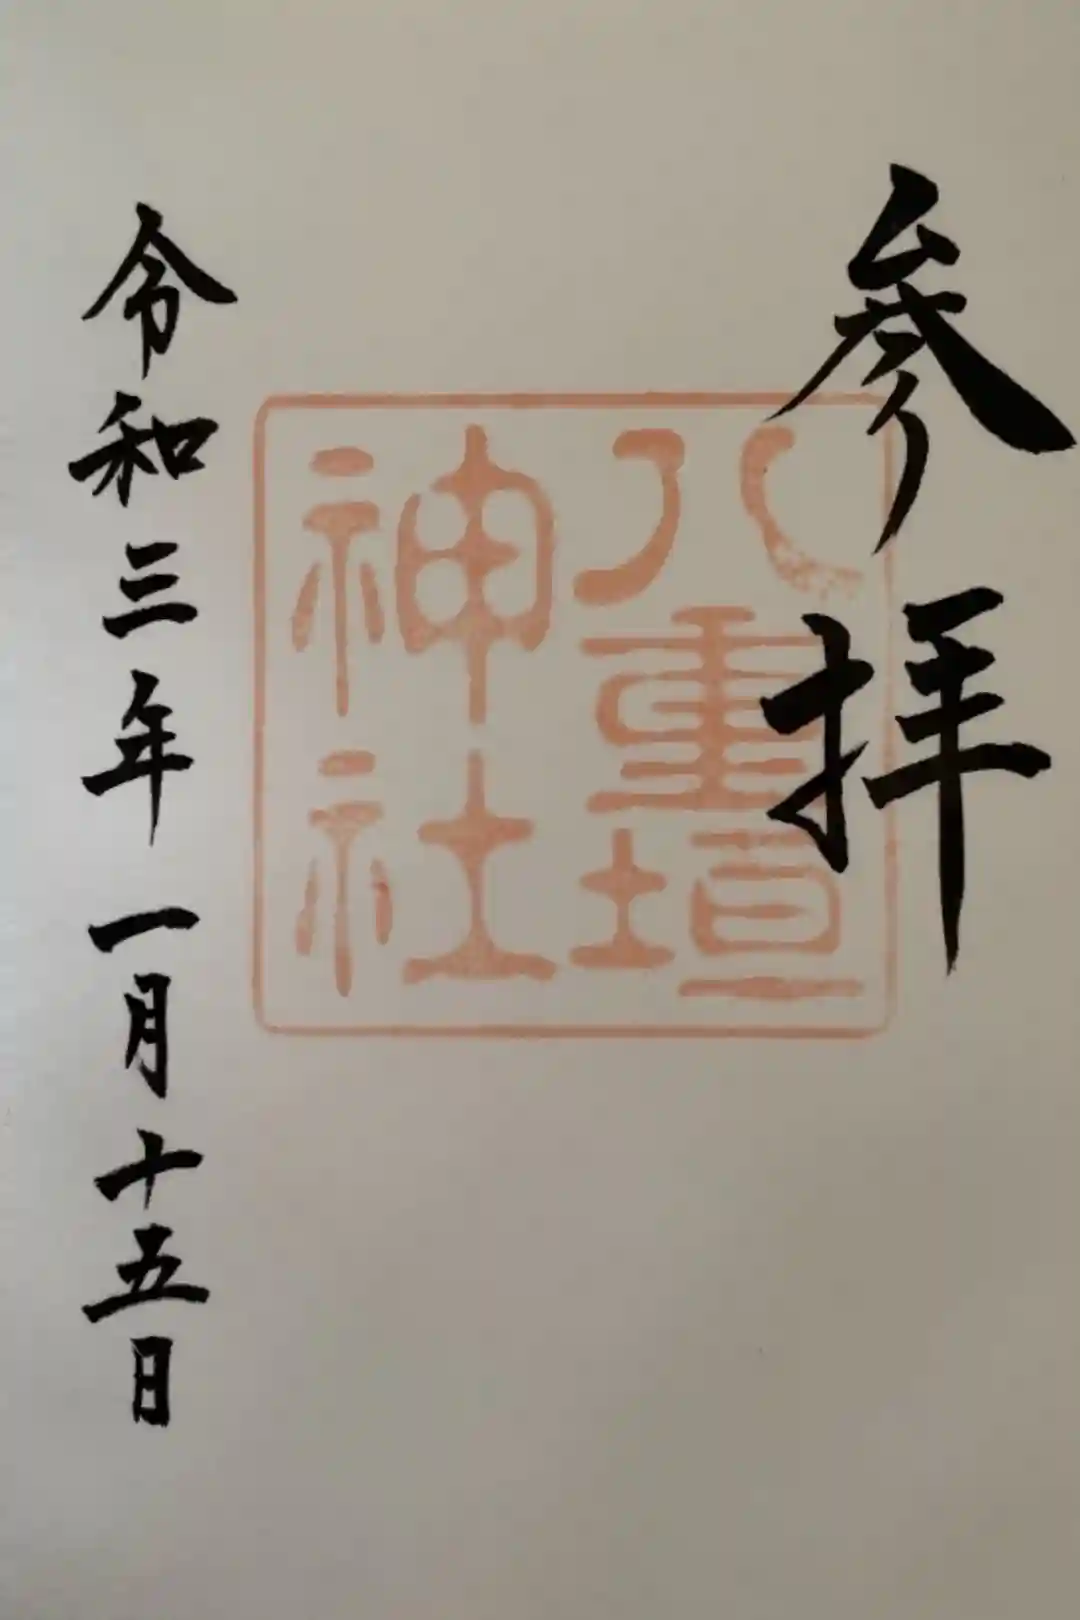 参拝
八重垣
神社
令和三年一月十五日